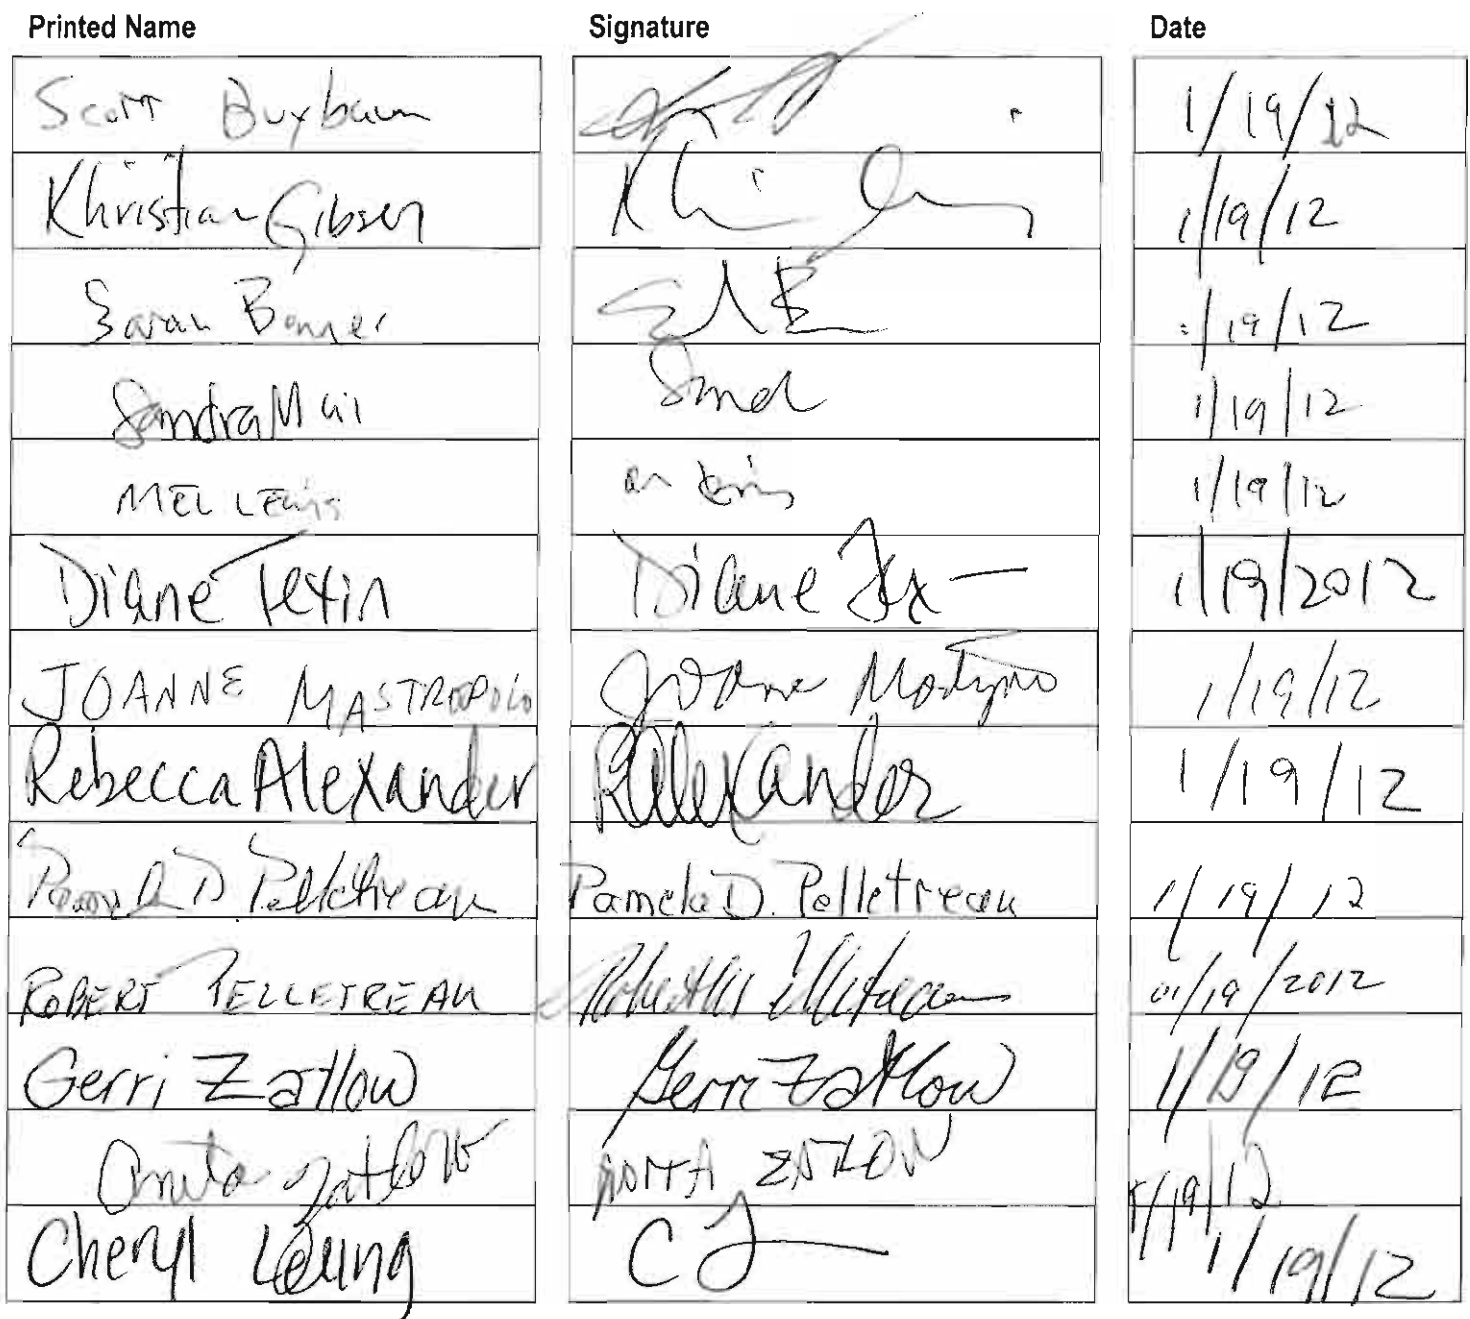 Printed Name Signature Date
Scott Buxbaum 1/19/12
Khristian Gibson 1/19/12
Sarah Bonner 1/19/12
Sandra Muir 1/19/12
MEL LEWIS 1/19/12
Diane Texin Diane Tex 1/19/2012
JOANNE MASTROPOLO Joanne 1/19/12
Rebecca Alexander RAlexander 1/19/12
Pamela D Pelletreau Pamela D. Pelletreau 1/19/12
ROBERT PELLETREAU 01/19/2012
Gerri Zatlow Gerri Zatlow 1/19/12
Anita Zatlow ANITA ZATLOW 1/19/12
Cheryl Leung 1/19/12